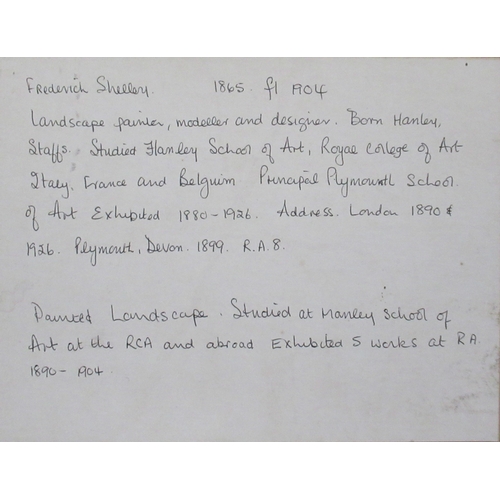 Frederick Shelley. 1865. fl 1904
Landscape painter, modeller and designer. Born Hanley,
Staffs. Studied Hanley School of Art, Royal College of Art
Italy, France and Belguim Principal Plymouth School
of Art Exhibited 1880-1926. Address. London 1890 &
1926. Plymouth, Devon. 1899. R.A. 8.
Painted Landscape. Studied at Hanley School of
Art at the RCA and abroad Exhibited 5 works at R.A.
1890-1904